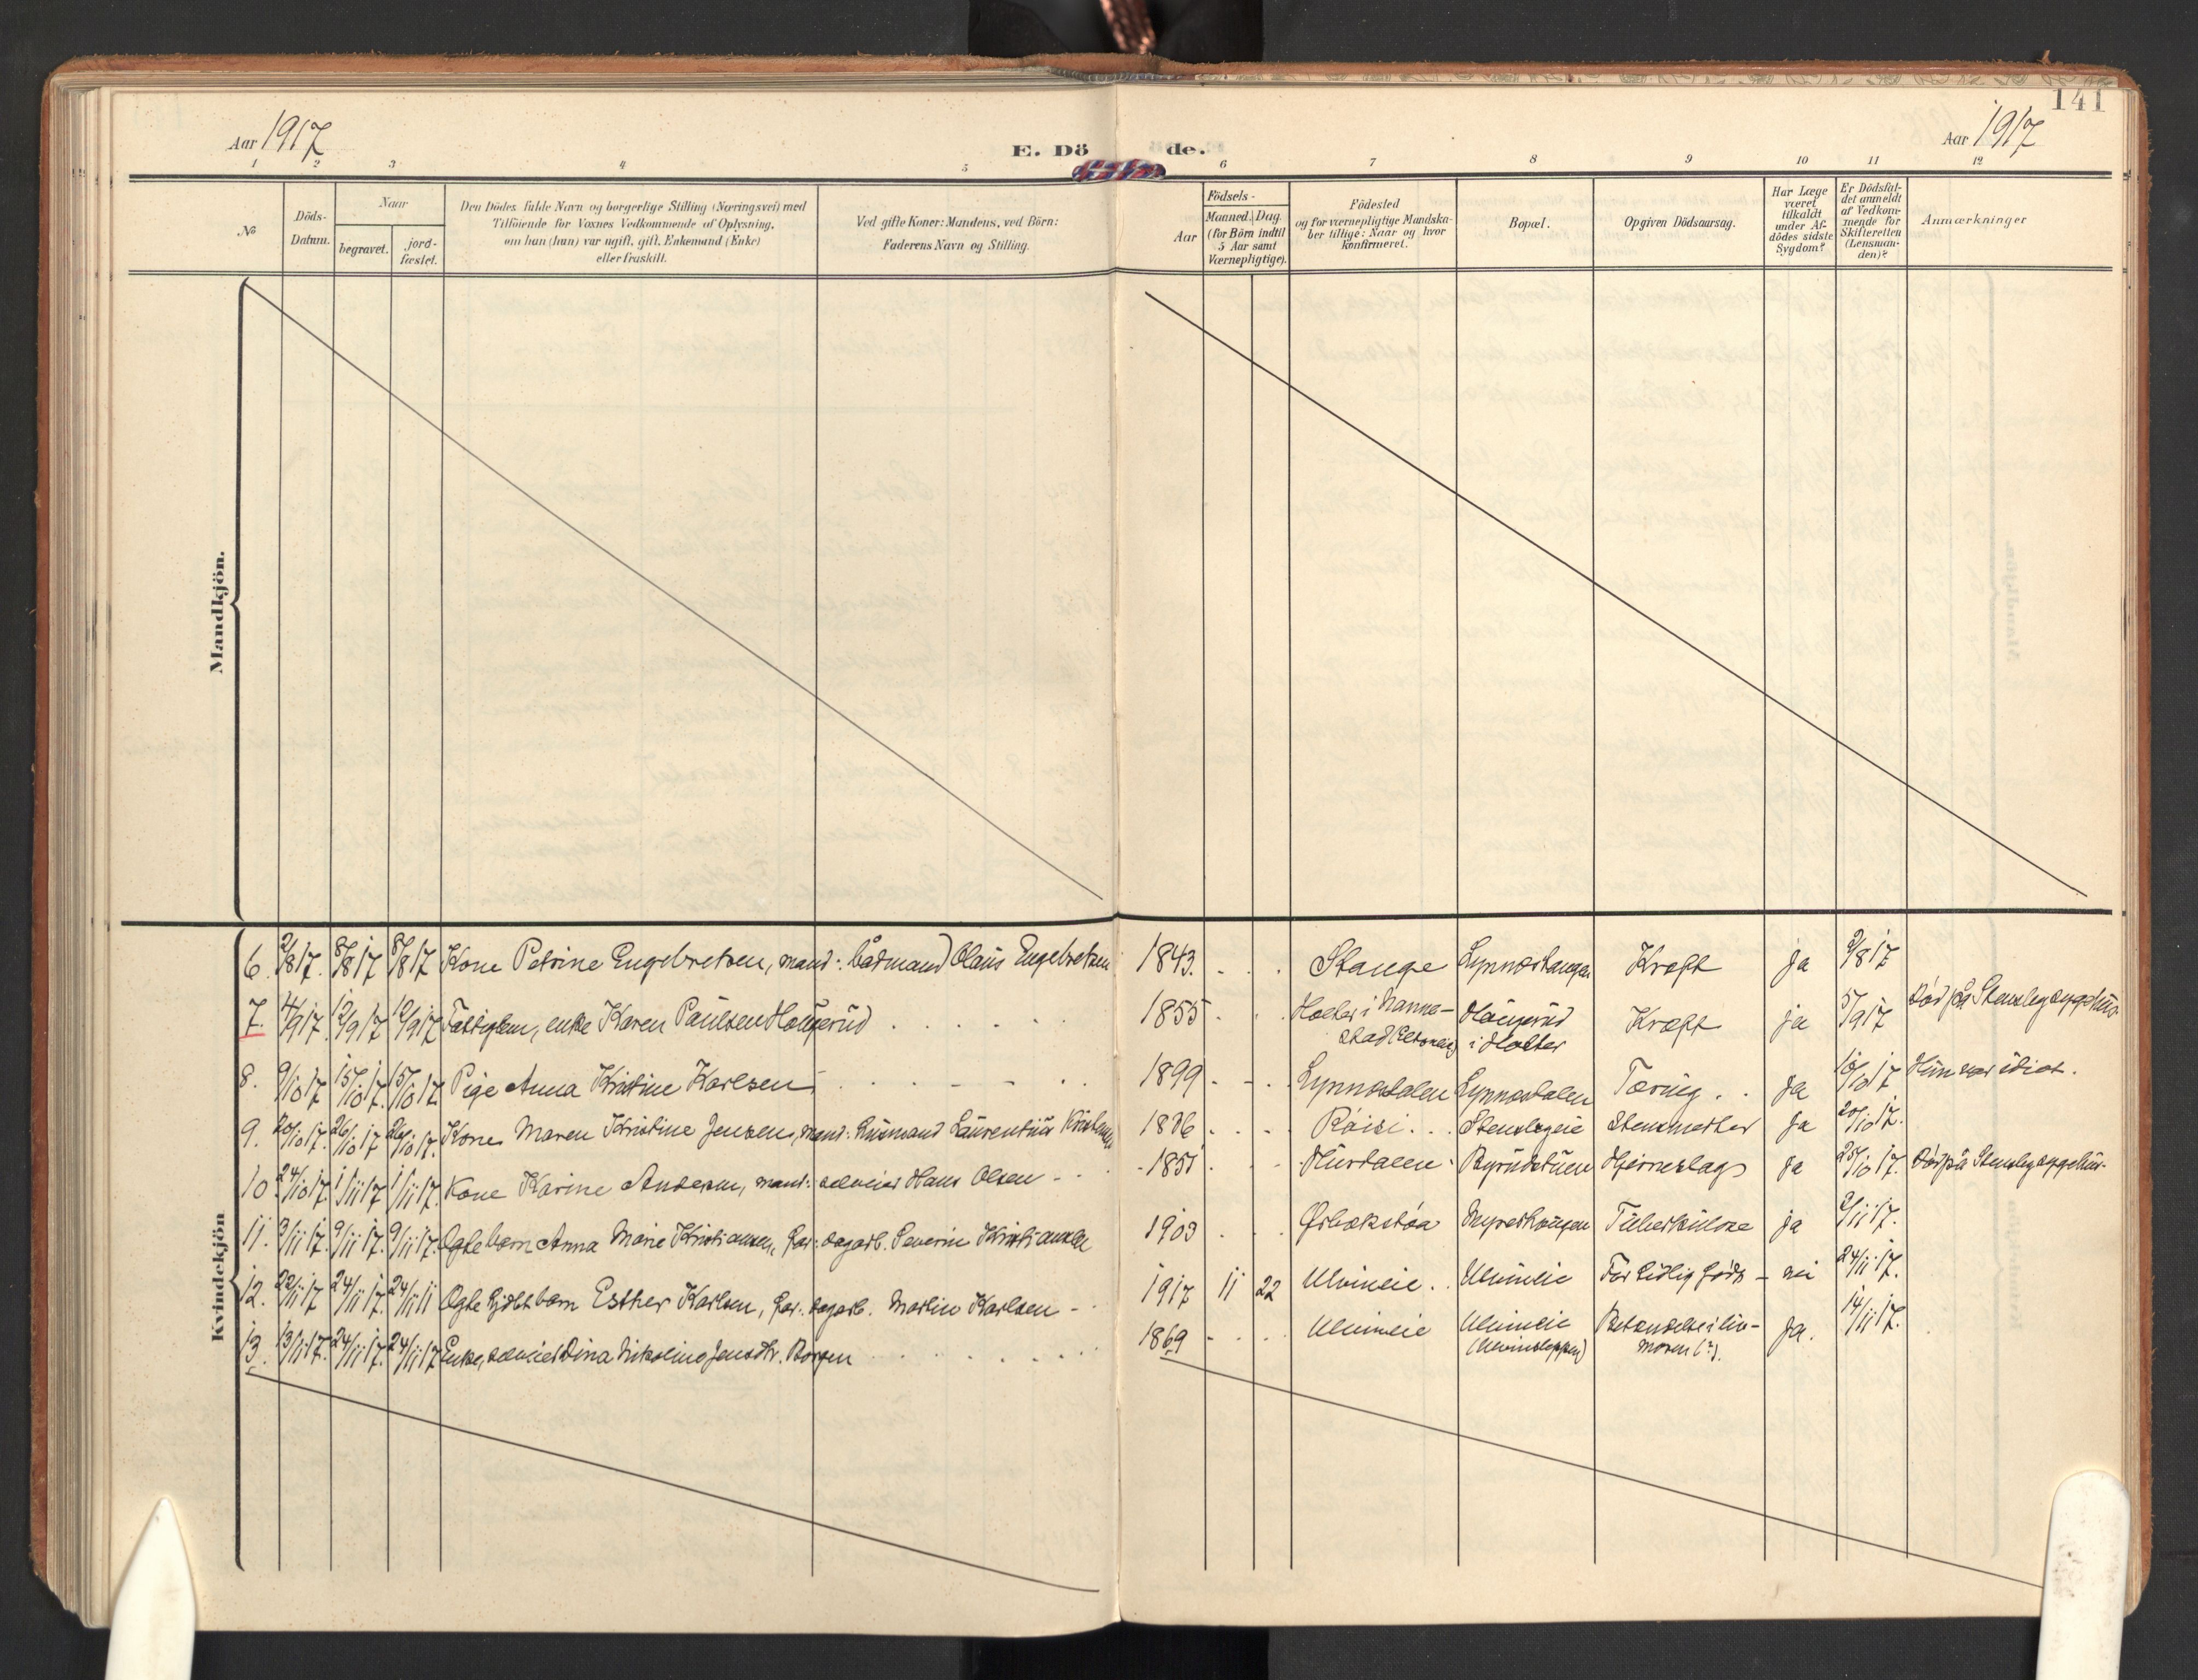 141
Aar 1917
E. Döde.
Aar 1917
1 2 3 4 5 6 7 8 9 10 11 12
No
Döds-
Datum.
Naar
begravet.
jord-
fæstet.
Den Dödes fulde Navn og borgerlige Stilling (Næringsvei) med
Tilföiende for Voxnes Vedkommende af Oplysning,
om han (hun) var ugift, gift, Enkemand (Enke)
eller fraskilt.
Ved gifte Koner: Mandens, ved Börn:
Faderens Navn og Stilling.
Födsels-
Aar
Maaned. Dag.
(for Börn indtil
5 Aar samt
Værnepligtige).
Födested
og for værnepligtige Mandska-
ber tillige: Naar og hvor
konfirmeret.
Bopæl.
Opgiven Dödsaarsag.
Har Læge
været
tilkaldt
under Af-
dödes sidste
Sygdom?
Er Dödsfal-
det anmeldt
af Vedkom-
mende for
Skifteretten
(Lensman-
den)?
Anmærkninger
Mandkjön.
Kvindekjön
6. 2/8 17. 8/8 17 8/8 17 Kone Petrine Engebretsen, mand: bådmand Olaus Engebretsen 1843. Stange Kræft ja 2/8 17
7. 4/9 17. 12/9 17 12/9 17 enke Karen Paulsen Haugerud 1855 Holter i Nanne- Haugerud Kræft ja 5/9 17 Död på Stensby sygehus.
stad i Holter
8. 9/10 17 15/10 17. 15/10 17. Pige Anna Kristine Karlsen 1899 Lynnesdalen Lynnesdalen Tæring. ja 10/10 17 Hun var idiot.
9. 20/10 17. 26/10 17 26/10 17. Kone Maren Kristine Jensen, mand: husmand Laurentius 1876 Råisi Stensbyeie ja 20/10 17.
10 24/10 17. 1/11 17 1/11 17. Kone Karine Andersen, mand: selveier Hans Olsen 1851 Hurdalen Byrudstuen Hjerneslag ja 25/10 17. Död på Stensby sygehus.
11. 2/11 17. 9/11 17. 9/11 17. Ægte barn Anna Marie Kristiansen, far: dagarb. Severin Kristiansen 1903 Tuberkulose ja 2/11 17.
12. 22/11 17 24/11 17. 24/11 11 Ægte barn Esther Karlsen, far: dagarb. Martin Karlsen 1917 11 22 Ulvineie Ulvineie For tidlig født nei 24/11 17.
13. 13/11 17. 24/11 17. 24/11 17 Enke, selveier Dina Nikoline Jensdtr. Borgen 1869 Ulvineie Ulvineie Betændelse i liv- ja. 14/11 17.
moren (?).